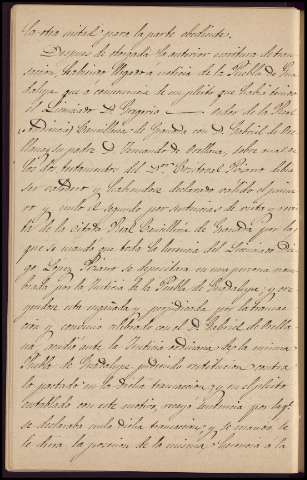 la otra mitad para la parte obediente.
Despues de otorgada la anterior escritura de tran-
saccion, habiendo llegado á noticia de la Puebla de Gua-
dalupe que á consecuencia de un pleito que habia tenido
el Licenciado D. Gregorio oidor de la Real
Chancilleria de Granada con D. Gabriel de Ore-
llana y su padre D. Fernando de Orellana, sobre cual de
los dos testamentos del Dor. Cristoval Pizano debia
ser valedero y habiendose declarado valido el prime-
ro y nulo el segundo, por sentencias de vista y revis-
ta de la citada Real Chancilleria de Granada por las
que se mandó que toda la herencia del Licenciado Die-
go Lopez Pizano se depositara en una persona nom-
brada por la Justicia de la Puebla de Guadalupe, y cre-
yendose esta engañada y perjudicada por la transac-
cion y convenio celebrado con el D. Gabriel de Orella-
na, acudió ante la Justicia ordinaria de la misma
Puebla de Guadalupe pidiendo restitucion contra
lo pactado en la dicha transaccion, y en el pleito
entablado con este motivo, recayó sentencia por la qe.
se declaraba nula dicha transaccion, y se mandó se
le diera la posesion de la misma herencia á la